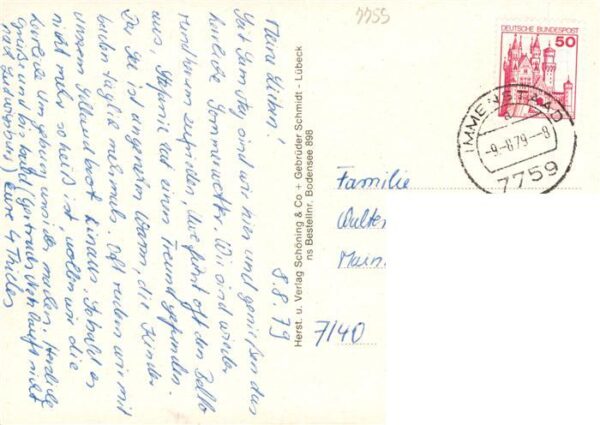 7755
8.8.79
Meine Lieben!
Seit Samstag sind wir hier und genießen das
herrliche Sommerwetter. Wir sind wieder
rundherum zufrieden, Uwe fährt oft den
aus, Stefanie hat einen Freund gefunden.
Der See ist angenehm warm, die Kinder
baden täglich mehrmals. Oft rudern wir mit
unserem Schlauchboot hinaus. Sobald es
nicht mehr so heiß ist, wollen wir die
herrliche Umgebung uns
Grüße und bis bald (Gertruds nicht
nach Ludwigsburg) Eure 4
Herst. u. Verlag Schöning & Co + Gebrüder Schmidt - Lübeck
ns Bestellnr. Bodensee 898
DEUTSCHE BUNDESPOST
50
IMMENSTAAD
a
-9.-8.79--8
7759
Familie
Walter
Main
7140